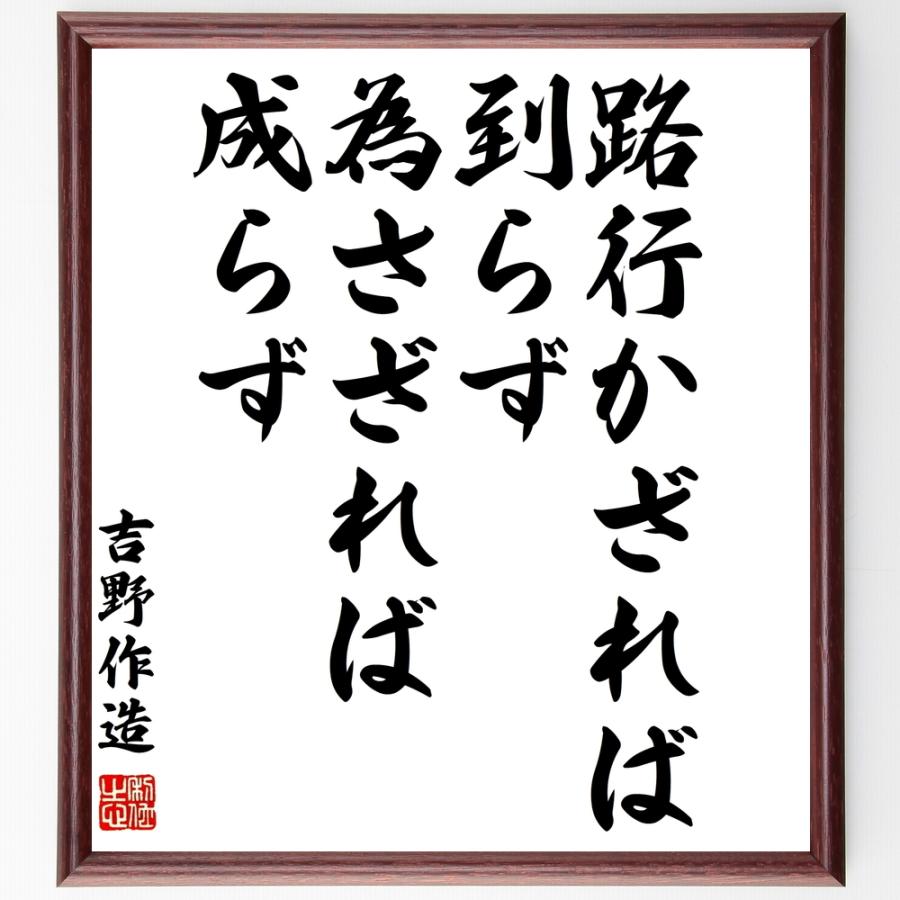 路行かざれば
到らず
為さざれば
成らず
吉野作造